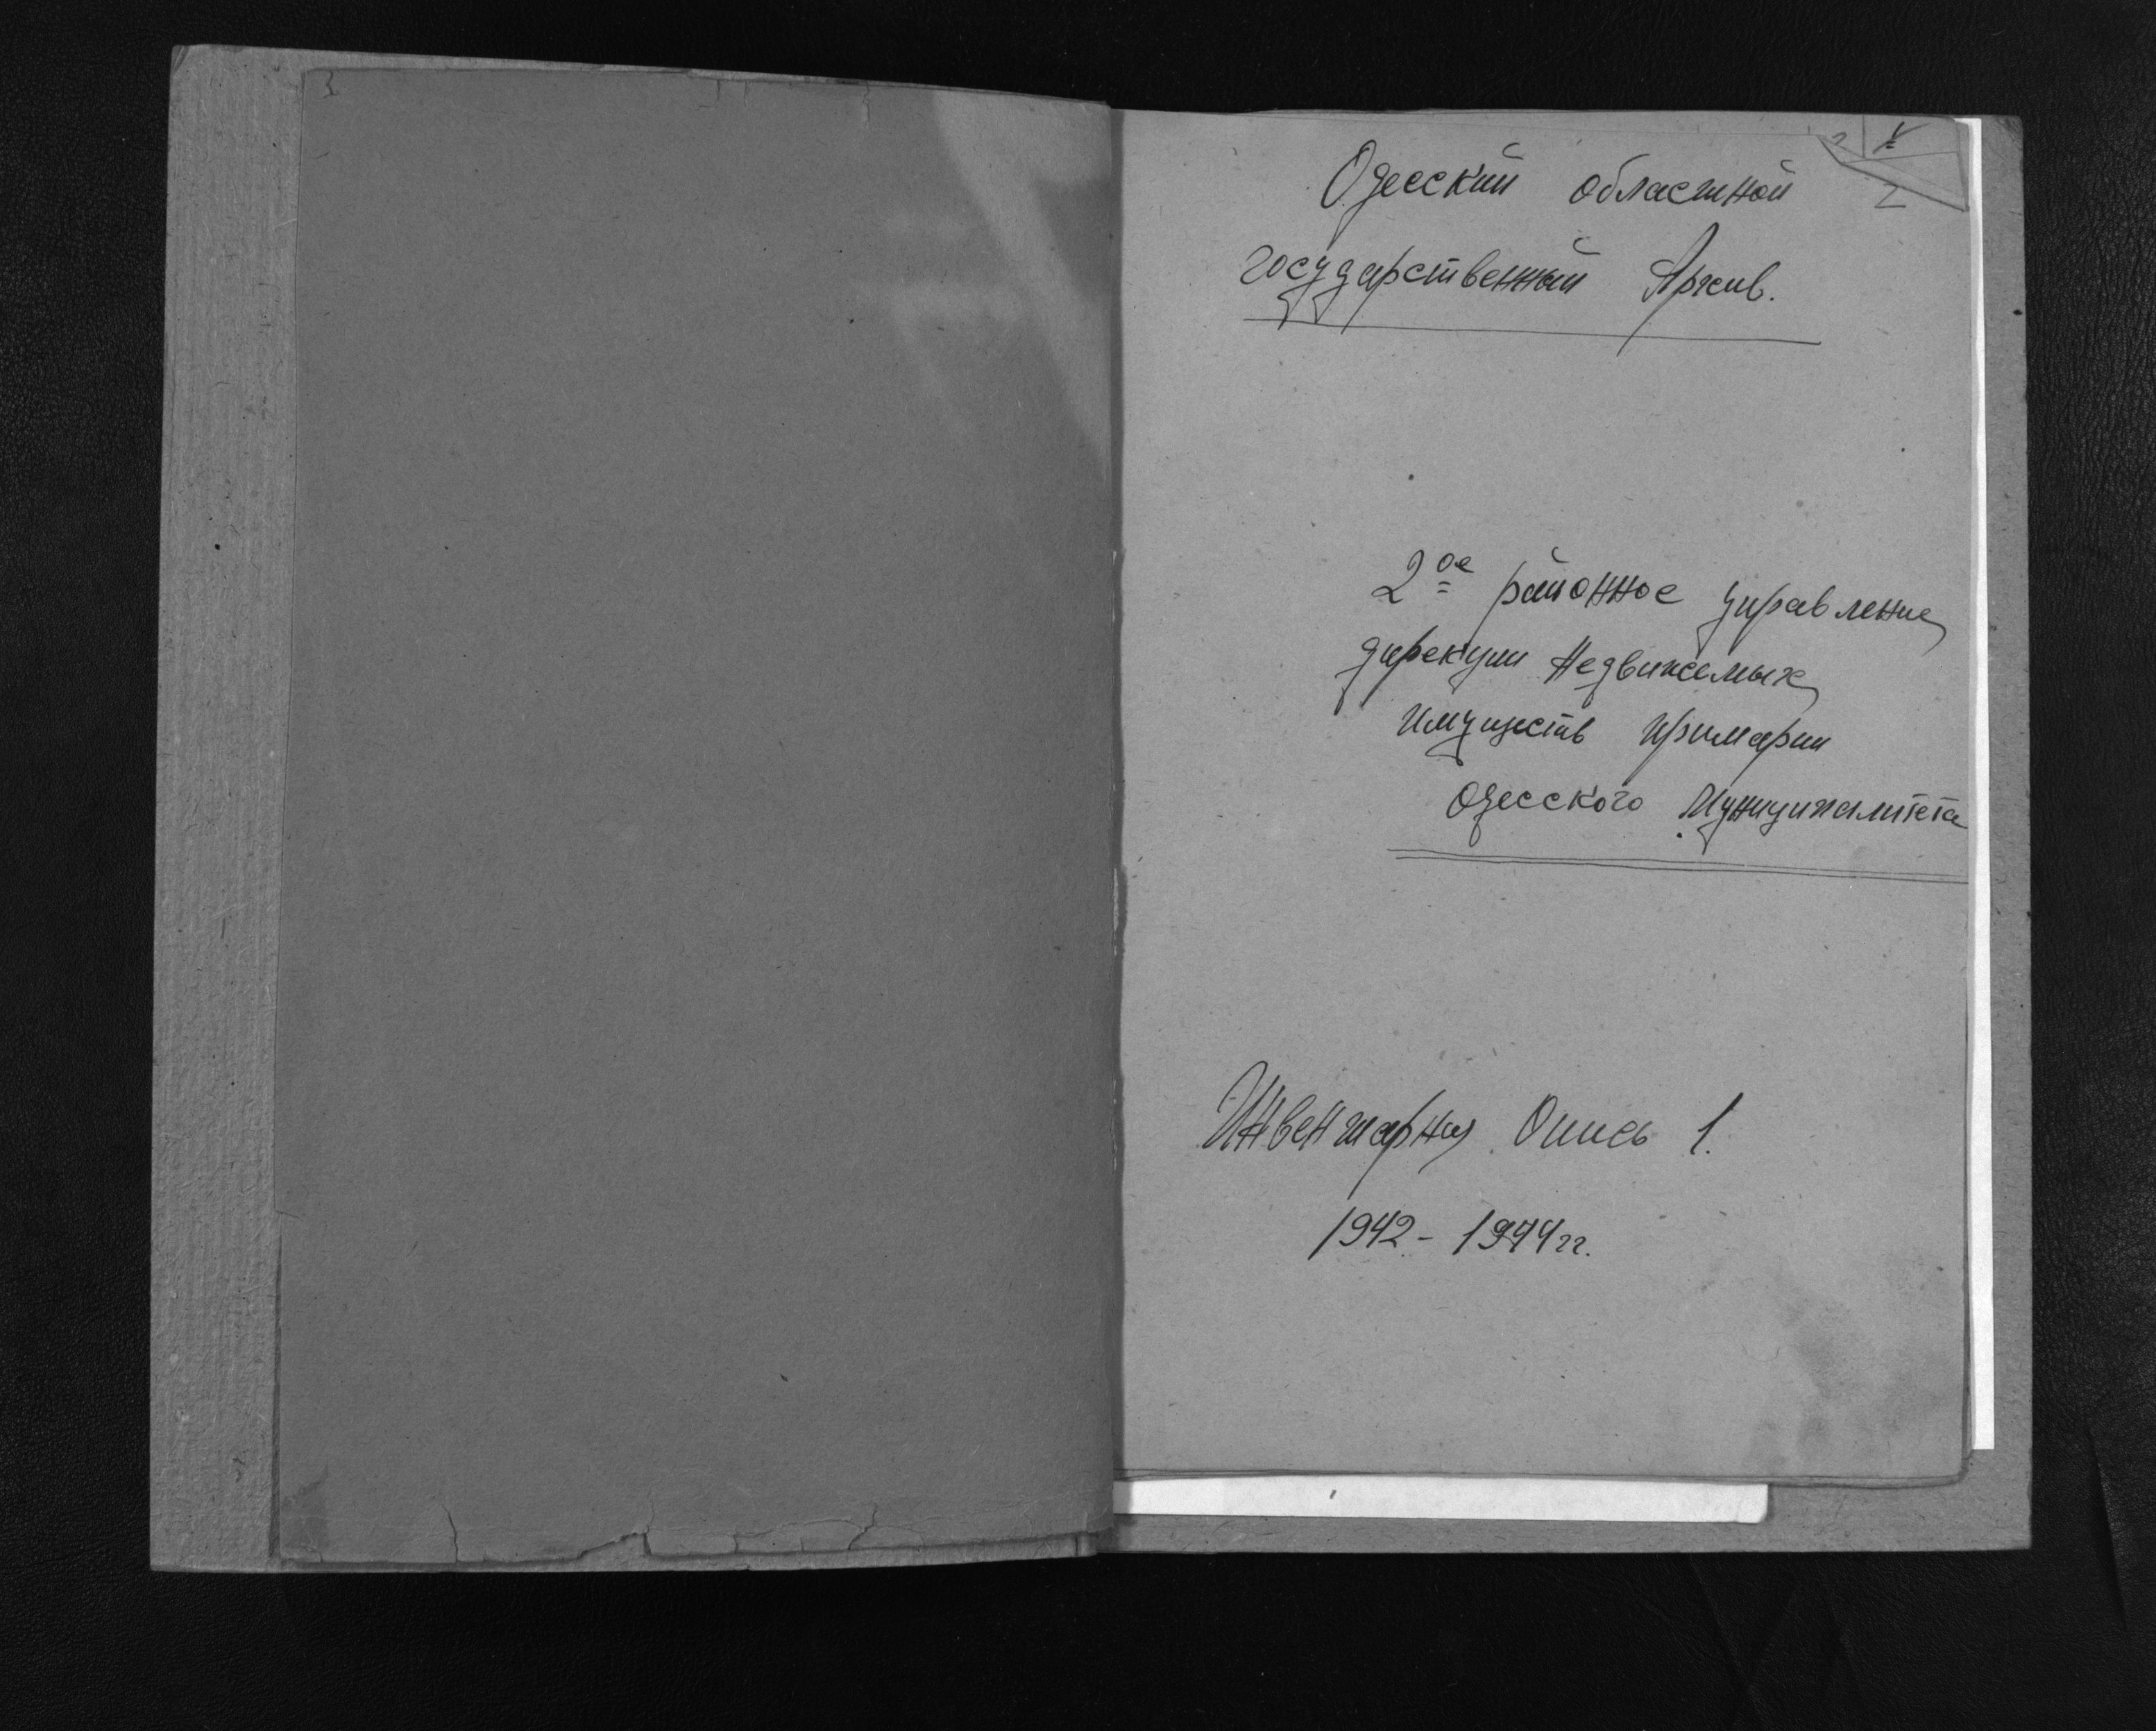 Одесский областной
государственный Архив.
2ое районное управление
дирекции недвижимых
имуществ примарии
Одесского Муниципалитета
Инвентарная Опись 1.
1942 - 1944 гг.
2